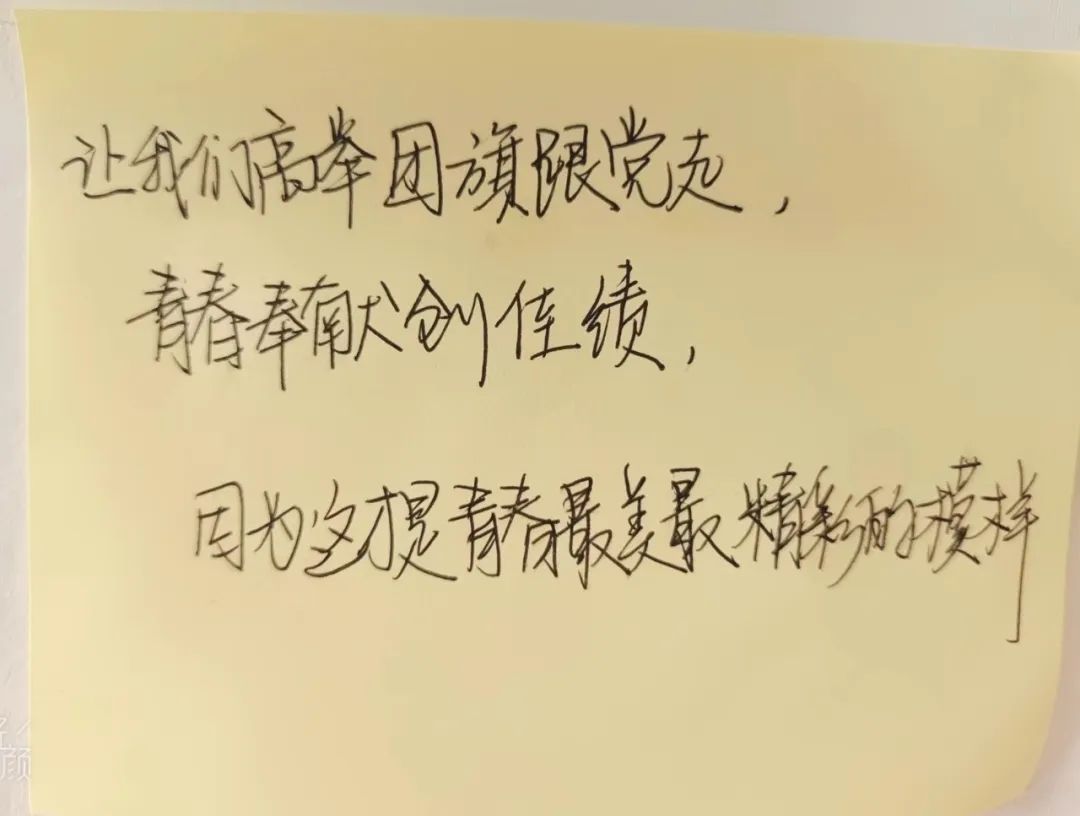 让我们高举团旗跟党走，
青春奉献创佳绩，
因为这才是青春最美最精彩的模样